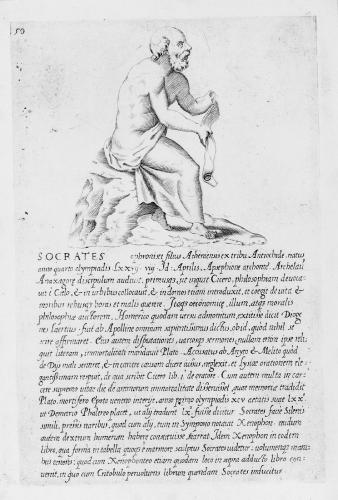 59
SOCRATES Sophronisci filius Atheniensis ex tribu Antiochide, natus
anno quarto olympiadis Lxxvij. vij Id. Aprilis, Apsephione archonte Archelai
Anaxagoræ discipulum audiuit. primusq, sit inquit Cicero, philosophiam deuoca-
uit è Cœlo, & in urbibus collocauit, & in domos etiam introduxit, et coegit de uita &
moribus rebusq; bonis et malis quærere. Itaq;
philosophiæ auctorem, Homerico quodam uersu admonitum, extitisse dicit Dioge
nes Laertius. fuit ab Apolline omnium sapientissimus dictus, obid, quod nihil se
scire affirmaret. Eius autem disputationes, uariosq; sermones, nullam enim ipse reli-
quit literam, immortalitati mandauit Plato. Accusatus ab Anyto & Melito quòd
de Dijs malè sentiret, & in carcere causam dicere
Cicero lib. i de oratore. Cum autem multa in car-
cere supremo uitæ die de animorum immortalitate disseruisset, quæ memoriæ tradidit
Plato. mortifero epoto ueneno interijt, anno primo olympiadis xcv ætatis suæ Lxx.
ut Demetrio Phalereo placet, ut alij tradunt Lx. fuisse dicitur Socrates facie Sileni
simili, pressis naribus, quod cum alij, tum in Symposio notauit Xenophon. nudum
autem dextrum humerum habere consueuisse, Idem Xenophon in eodem
libro, qua forma in tabella quoq; è marmore sculptus Socrates uidetur: uolumenq; mani-
bus tenens: quod cum Xenophonteo etiam quodam loco in apro adducto libro con-
uenit, in quo cum Critobulo peruoluens librum quendam Socrates inducitur